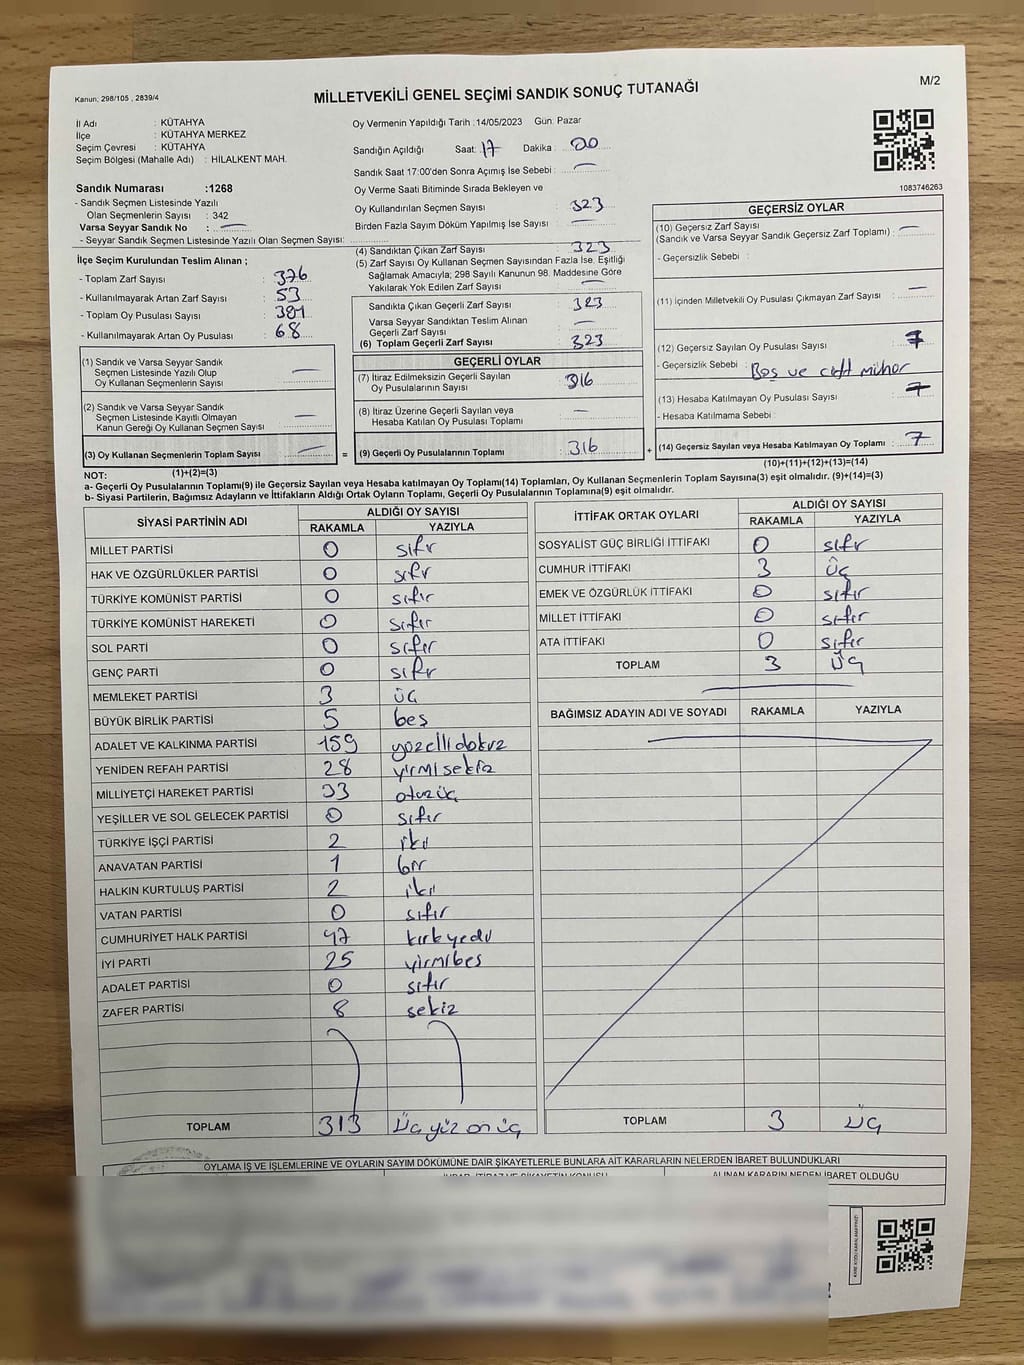 M/2
Kanun, 298/105 , 2839/4
MİLLETVEKİLİ GENEL SEÇİMİ SANDIK SONUÇ TUTANAĞI
İl Adı : KÜTAHYA
İlçe : KÜTAHYA MERKEZ
Seçim Çevresi : KÜTAHYA
Seçim Bölgesi (Mahalle Adı) : HİLALKENT MAH.
Sandık Numarası :1268
- Sandık Seçmen Listesinde Yazılı
Olan Seçmenlerin Sayısı : 342
Varsa Seyyar Sandık No : —
- Seyyar Sandık Seçmen Listesinde Yazılı Olan Seçmen Sayısı:
İlçe Seçim Kurulundan Teslim Alınan ;
- Toplam Zarf Sayısı : 376
- Kullanılmayarak Artan Zarf Sayısı : 53
- Toplam Oy Pusulası Sayısı : 391
- Kullanılmayarak Artan Oy Pusulası : 68
(1) Sandık ve Varsa Seyyar Sandık
Seçmen Listesinde Yazılı Olup
Oy Kullanan Seçmenlerin Sayısı —
(2) Sandık ve Varsa Seyyar Sandık
Seçmen Listesinde Kayıtlı Olmayan
Kanun Gereği Oy Kullanan Seçmen Sayısı —
(3) Oy Kullanan Seçmenlerin Toplam Sayısı —
(1)+(2)=(3)
Oy Vermenin Yapıldığı Tarih :14/05/2023 Gün: Pazar
Sandığın Açıldığı Saat: 17 Dakika : 00
Sandık Saat 17:00'den Sonra Açımış İse Sebebi : —
Oy Verme Saati Bitiminde Sırada Bekleyen ve
Oy Kullandırılan Seçmen Sayısı : 323
Birden Fazla Sayım Döküm Yapılmış İse Sayısı : —
(4) Sandıktan Çıkan Zarf Sayısı : 323
(5) Zarf Sayısı Oy Kullanan Seçmen Sayısından Fazla İse, Eşitliği
Sağlamak Amacıyla; 298 Sayılı Kanunun 98. Maddesine Göre
Yakılarak Yok Edilen Zarf Sayısı : —
Sandıkta Çıkan Geçerli Zarf Sayısı : 323
Varsa Seyyar Sandıktan Teslim Alınan
Geçerli Zarf Sayısı : —
(6) Toplam Geçerli Zarf Sayısı : 323
GEÇERLİ OYLAR
(7) İtiraz Edilmeksizin Geçerli Sayılan
Oy Pusulalarının Sayısı : 316
(8) İtiraz Üzerine Geçerli Sayılan veya
Hesaba Katılan Oy Pusulası Toplamı : —
= (9) Geçerli Oy Pusulalarının Toplamı : 316 +
1083746263
GEÇERSİZ OYLAR
(10) Geçersiz Zarf Sayısı : —
(Sandık ve Varsa Seyyar Sandık Geçersiz Zarf Toplamı) :
- Geçersizlik Sebebi :
(11) İçinden Milletvekili Oy Pusulası Çıkmayan Zarf Sayısı : —
(12) Geçersiz Sayılan Oy Pusulası Sayısı : 7
- Geçersizlik Sebebi : Boş ve çift mühür
(13) Hesaba Katılmayan Oy Pusulası Sayısı : 7
- Hesaba Katılmama Sebebi :
(14) Geçersiz Sayılan veya Hesaba Katılmayan Oy Toplamı : 7
(10)+(11)+(12)+(13)=(14)
NOT:
a- Geçerli Oy Pusulalarının Toplamı(9) ile Geçersiz Sayılan veya Hesaba katılmayan Oy Toplamı(14) Toplamları, Oy Kullanan Seçmenlerin Toplam Sayısına(3) eşit olmalıdır. (9)+(14)=(3)
b- Siyasi Partilerin, Bağımsız Adayların ve İttifakların Aldığı Ortak Oyların Toplamı, Geçerli Oy Pusulalarının Toplamına(9) eşit olmalıdır.
SİYASİ PARTİNİN ADI ALDIĞI OY SAYISI
RAKAMLA YAZIYLA
MİLLET PARTİSİ 0 sıfr
HAK VE ÖZGÜRLÜKLER PARTİSİ 0 sıfr
TÜRKİYE KOMÜNİST PARTİSİ 0 sıfır
TÜRKİYE KOMÜNİST HAREKETİ 0 sıfır
SOL PARTİ 0 sıfır
GENÇ PARTİ 0 sıfr
MEMLEKET PARTİSİ 3 üç
BÜYÜK BİRLİK PARTİSİ 5 beş
ADALET VE KALKINMA PARTİSİ 159 yüzellidokuz
YENİDEN REFAH PARTİSİ 28 yirmisekiz
MİLLİYETÇİ HAREKET PARTİSİ 33 otuzüç
YEŞİLLER VE SOL GELECEK PARTİSİ 0 sıfır
TÜRKİYE İŞÇİ PARTİSİ 2 iki
ANAVATAN PARTİSİ 1 bir
HALKIN KURTULUŞ PARTİSİ 2 iki
VATAN PARTİSİ 0 sıfır
CUMHURİYET HALK PARTİSİ 47 kırkyedi
İYİ PARTİ 25 yirmibeş
ADALET PARTİSİ 0 sıfır
ZAFER PARTİSİ 8 sekiz
TOPLAM 313 Üç yüz on üç
İTTİFAK ORTAK OYLARI ALDIĞI OY SAYISI
RAKAMLA YAZIYLA
SOSYALİST GÜÇ BİRLİĞİ İTTİFAKI 0 sıfır
CUMHUR İTTİFAKI 3 üç
EMEK VE ÖZGÜRLÜK İTTİFAKI 0 sıfır
MİLLET İTTİFAKI 0 sıfır
ATA İTTİFAKI 0 sıfır
TOPLAM 3 üç
BAĞIMSIZ ADAYIN ADI VE SOYADI RAKAMLA YAZIYLA
TOPLAM 3 üç
OYLAMA İŞ VE İŞLEMLERİNE VE OYLARIN SAYIM DÖKÜMÜNE DAİR ŞİKAYETLERLE BUNLARA AİT KARARLARIN NELERDEN İBARET BULUNDUKLARI
ALINAN KARARIN NEDEN İBARET OLDUĞU